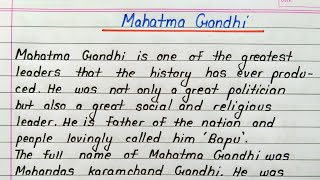 Mahatma Gandhi
Mahatma Gandhi is one of the greatest
leaders that the history has ever produ-
ced. He was not only a great politician
but also a great social and religious
leader. He is father of the nation and
people lovingly called him 'Bapu'.
The full name of Mahatma Gandhi was
Mohandas karamchand Gandhi. He was